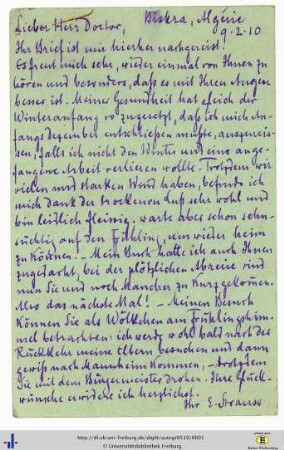 Lieber Herr Doctor, Biskra, Algérie
9.2.10
Ihr Brief ist mir hierher nachgereist!
Es freut mich sehr, wieder einmal von Ihnen zu
hören und besonders, daß es mit Ihren Augen
besser ist. Meiner Gesundheit hat gleich der
Winteranfang so zugesetzt, daß ich mich An-
fangs Dezember entschließen mußte, auszureis-
sen, falls ich nicht den Winter und eine ange-
fangene Arbeit verlieren wollte. Trotzdem wir
vielen und starken Wind haben, befinde ich
mich dank der trockenen Luft sehr wohl und
bin leidlich fleissig. warte aber schon sehn-
süchtig auf den Frühling, um wieder heim
zu können. — Mein Buch hatte ich auch Ihnen
zugedacht, bei der plötzlichen Abreise sind
nun Sie und noch Mancher zu kurz gekommen.
Also das nächste Mal! — Meinen Besuch
können Sie als Wölkchen am Frühlingshim-
mel betrachten: ich werde wohl bald nach der
Rückkehr meine Eltern besuchen und dann
gewiß nach Mannheim kommen, — trotzdem
Sie mit dem Bürgermeister drohen. Ihre Glück-
wünsche erwidre ich herzlichst.
Ihr E. Strauss
http://dl.ub.uni-freiburg.de/diglit/autogr0510/0001
© Universitätsbibliothek Freiburg
Baden-Württemberg